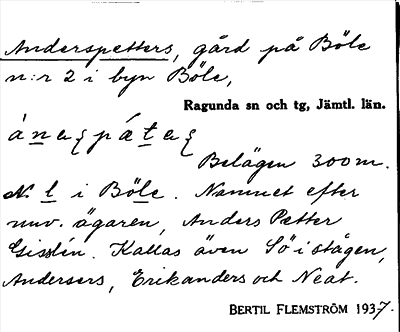 Anderspetters, gård på Böle
n:r 2 i byn Böle,
Ragunda sn och tg, Jämtl. län.
Belägen 300 m.
N. l i Böle. Namnet efter
nuv. ägaren, Anders Petter
Gisslén. Kallas även Sö' i stågen,
Andersers, Erikanders och Neat.
BERTIL FLEMSTRÖM 1937.